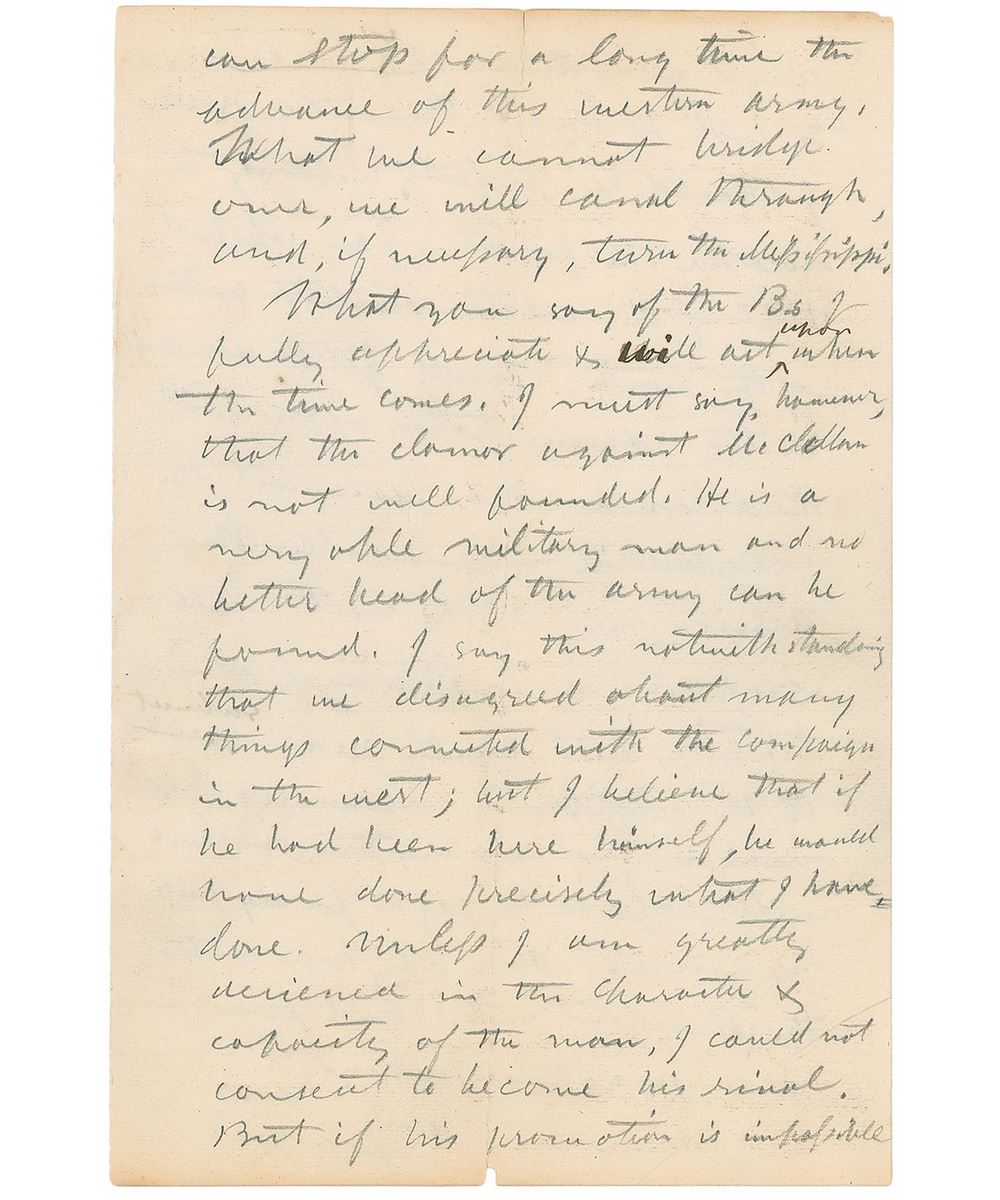 can stop for a long time the
advance of this western army.
What we cannot bridge
over, we will canal through,
and, if necessary, turn the Mississippi.
What you say of the Bs I
upon
fully appreciate & will act when
the time comes. I must say, however,
that the clamor against McClellan
is not well founded. He is a
very able military man and no
better head of the army can be
found. I say this notwithstanding
that we disagreed about many
things connected with the campaign
in the west; but I believe that if
he had been here himself, he would
have done precisely what I have
done. Unless I am greatly
deceived in the character &
capacity of the man, I could not
consent to become his rival.
But if his promotion is impossible